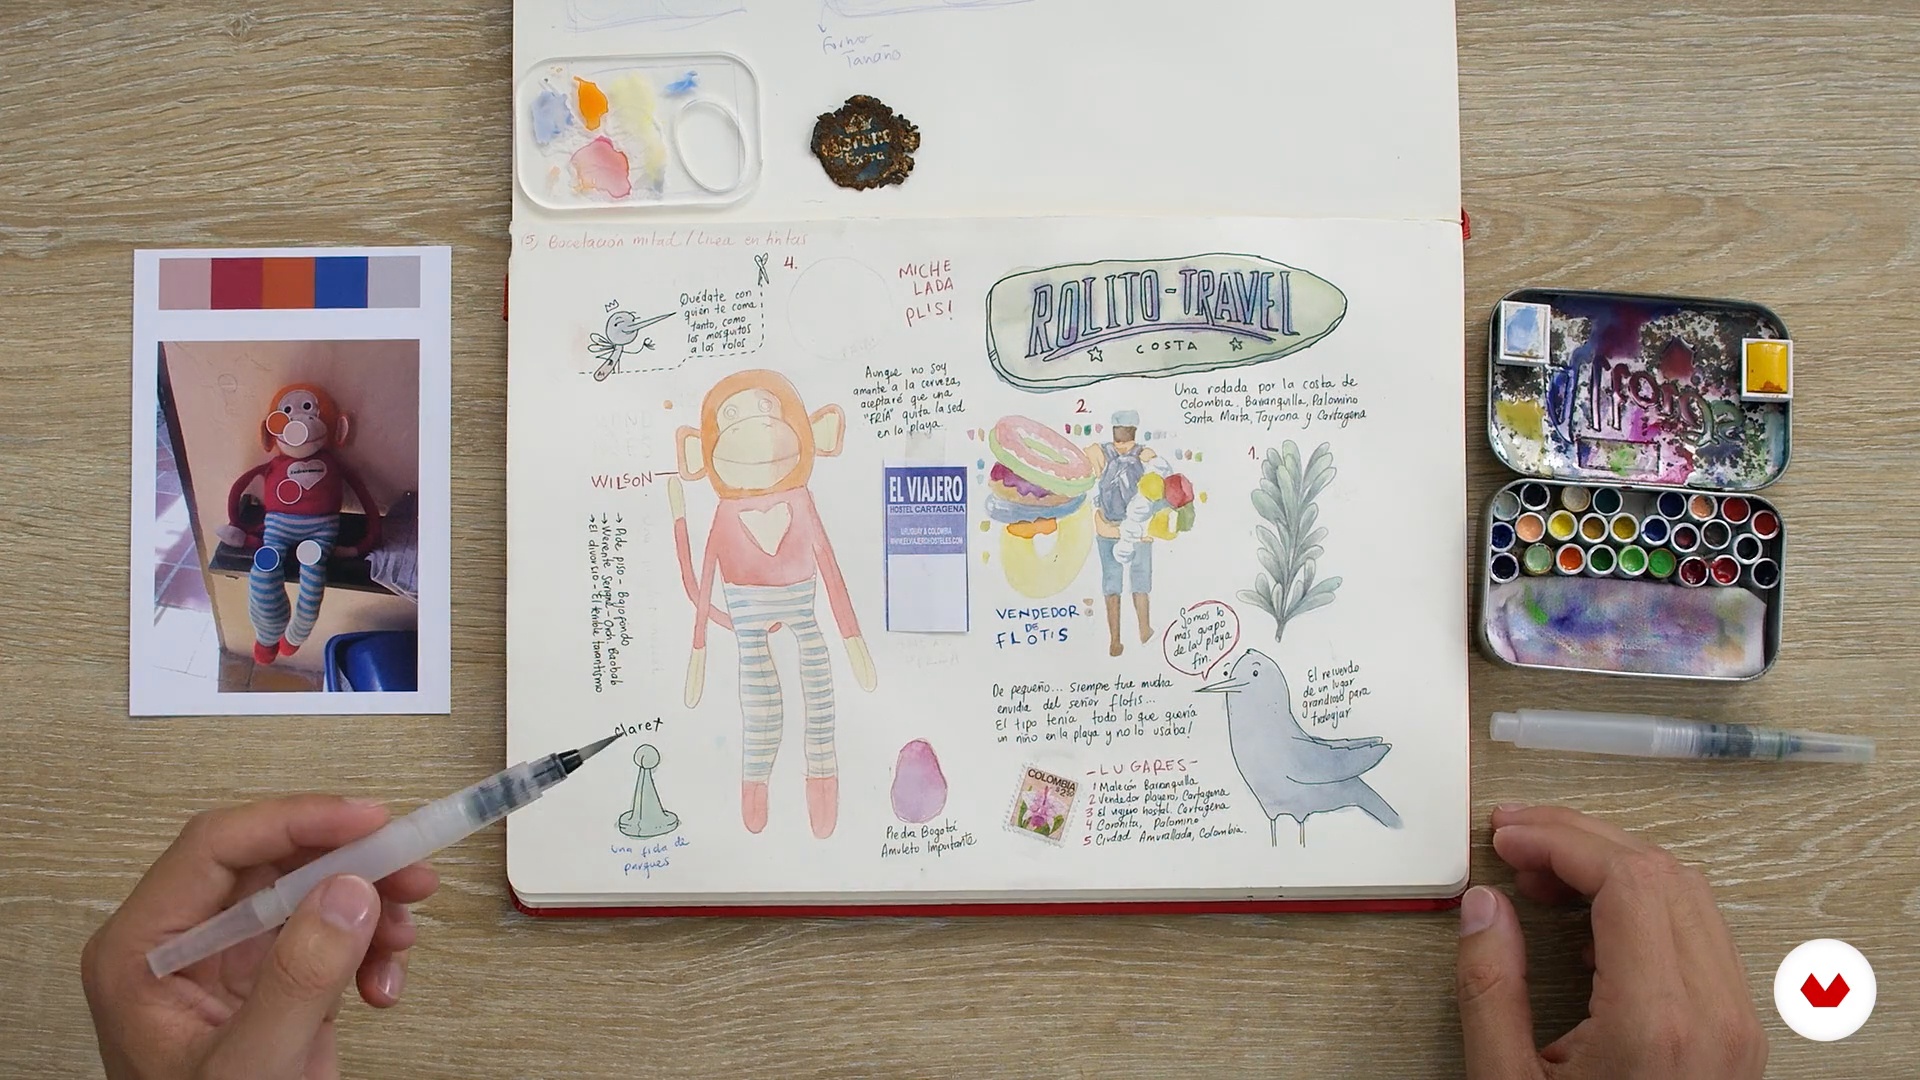 Forma
Tamaño
Extra
15) Bocetación mitad / Linea en tintas
Quédate con
quién te coma
tanto, como
los mosquitos
a los rolos
4.
MICHE
LADA
PLIS!
Aunque no soy
amante a la cerveza,
aceptaré que una
"FRÍA" quita la sed
en la playa.
ROLITO-TRAVEL
COSTA
Una rodada por la costa de
Colombia. Barranquilla, Palomino
Santa Marta, Tayrona y Cartagena
WILSON
→ Pide piso - Bajofondo
→ Werente Serigne - Orch. Baobab
→ El divorcio - El terrible tarantismo
EL VIAJERO
HOSTEL CARTAGENA
URUGUAY & COLOMBIA
WWW.ELVIAJEROHOSTELES.COM
2.
VENDEDOR
DE
FLOTIS
1.
Somos lo
más guapo
de la playa
fin.
De pequeño... siempre tuve mucha
envidia del señor flotis...
El tipo tenía todo lo que quería
un niño en la playa y no lo usaba!
El recuerdo
de un lugar
grandioso para
trabajar
Claret
una ficha de
parqués
Piedra Bogotá
Amuleto Importante
COLOMBIA
-LUGARES-
1 Malecón Barranquilla
2 Vendedor playero, Cartagena
3 El viajero hostel. Cartagena
4 Coronita, Palomino
5 Ciudad Amurallada, Colombia.